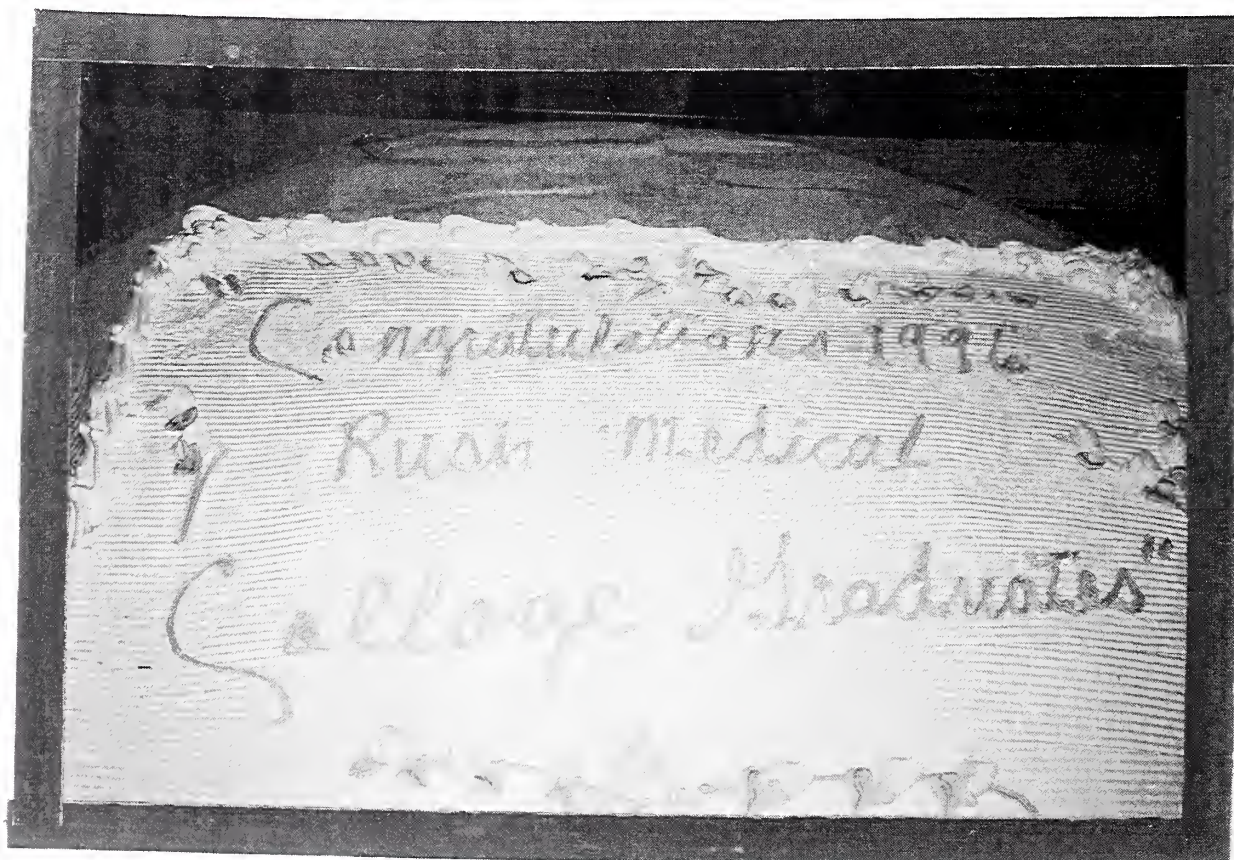 Congratulations 1996
Rush Medical
College Graduates"